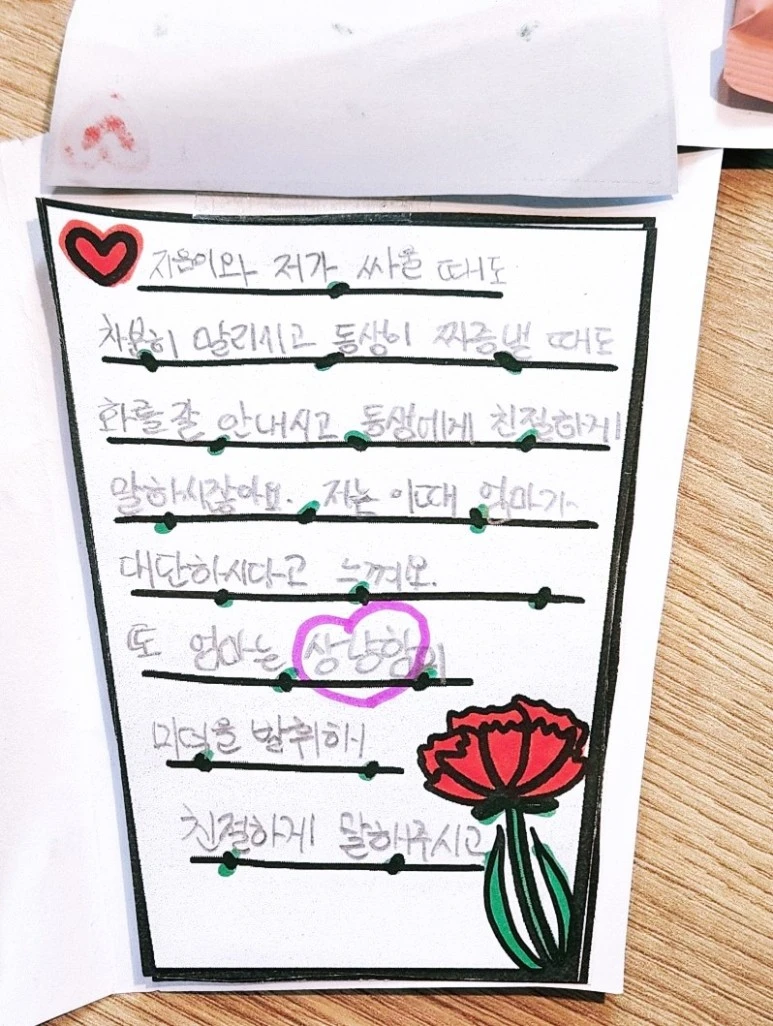 지음이와 저가 싸울 때도
차분히 말리시고 동생이 짜증낼 때도
화를 잘 안내시고 동생에게 친절하게
말하시잖아요. 저는 이때 엄마가
대단하시다고 느껴요.
또 엄마는 상냥함의
미덕을 발휘해
친절하게 말해주시고